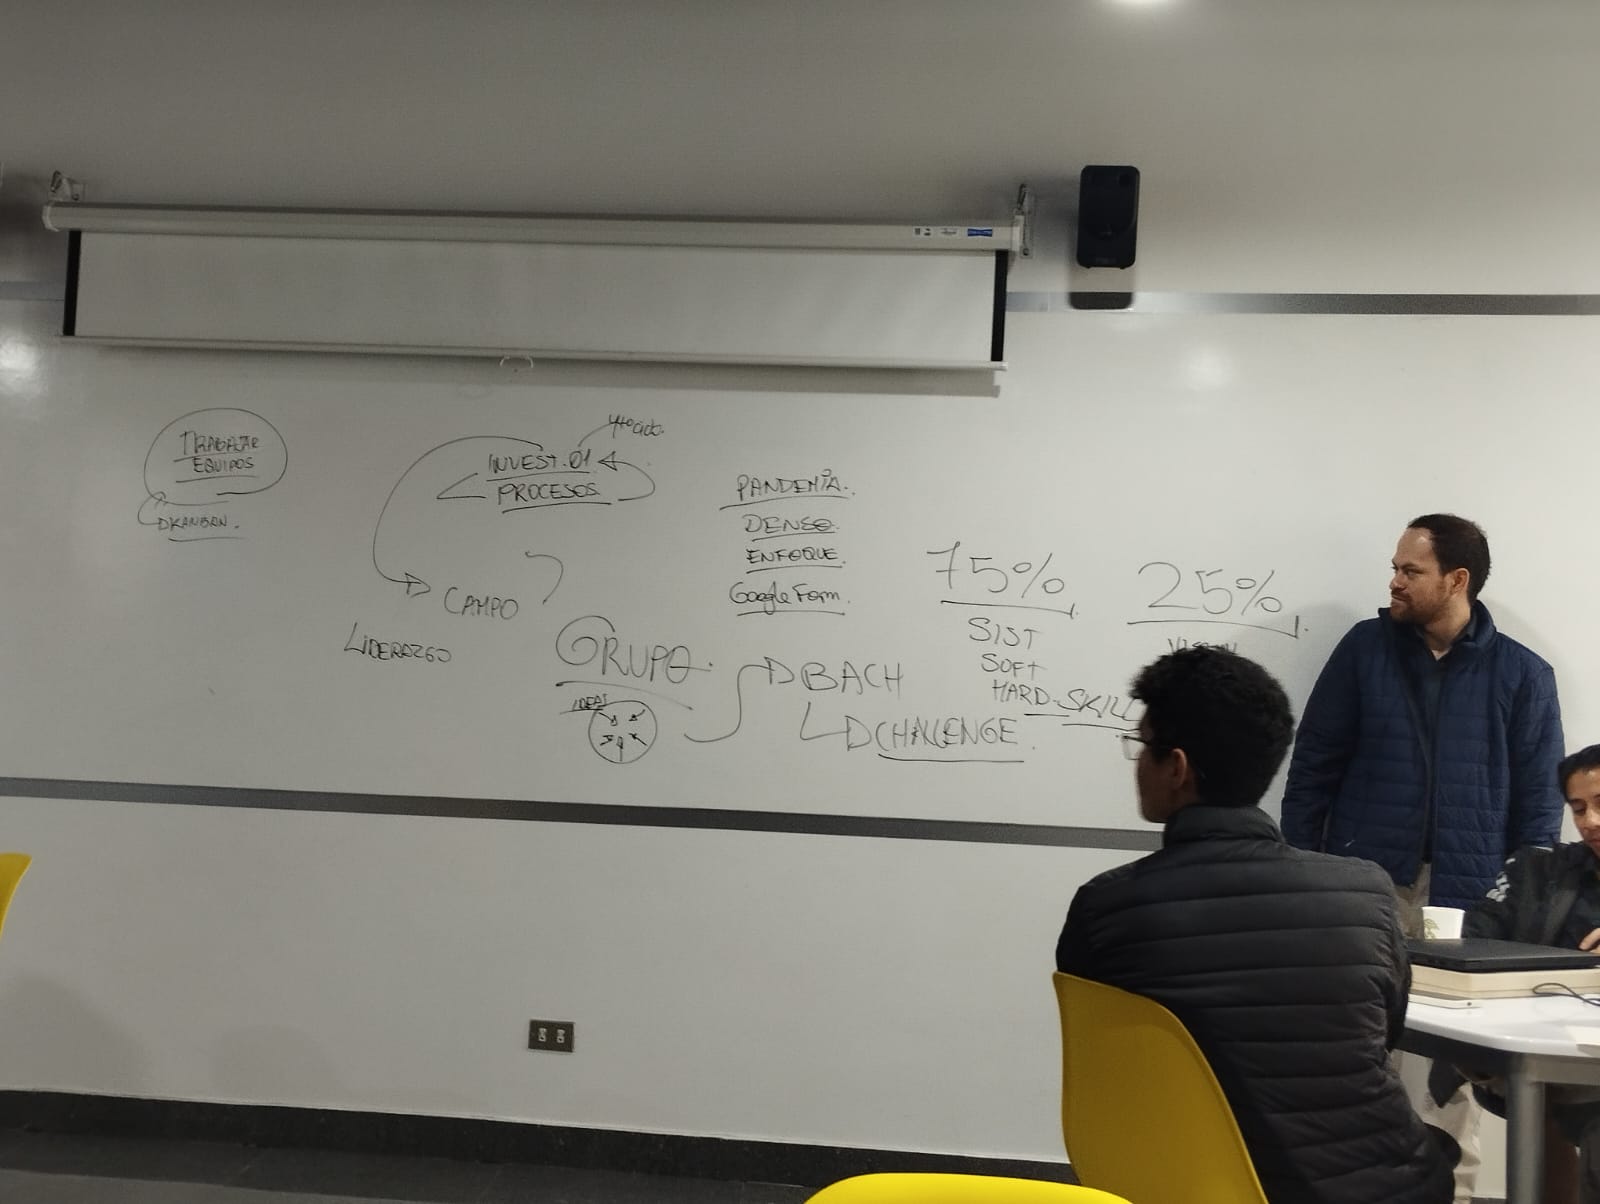 TRABAJAR
EQUIPOS
KANBAN.
4to ciclo.
INVEST. 01
PROCESOS
CAMPO
LIDERAZGO
PANDEMIA.
DENSO.
ENFOQUE.
Google Form.
GRUPO.
IDEAS
BACH
CHALLENGE.
75%
SIST
SOFT
HARD-SKILL
25%